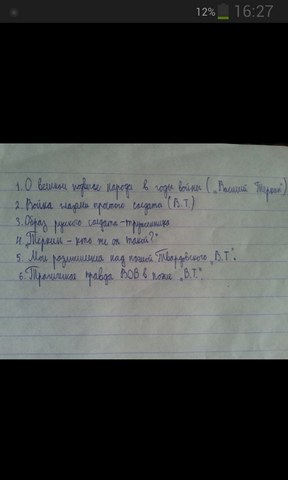 12% 16:27
1. О великом подвиге народа в годы войны ("Василий Теркин")
2. Война глазами простого солдата (В.Т.)
3. Образ русского солдата-труженика
4. "Теркин - кто же он такой?"
5. Мои размышления над поэмой Твардовского "В.Т".
6. Трагичная правда ВОВ в поэме "В.Т."